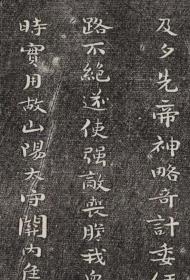 及夕先帝神略奇計委任
路不絶遂使强敵喪膽我衆
時實用故山陽太守關内侯